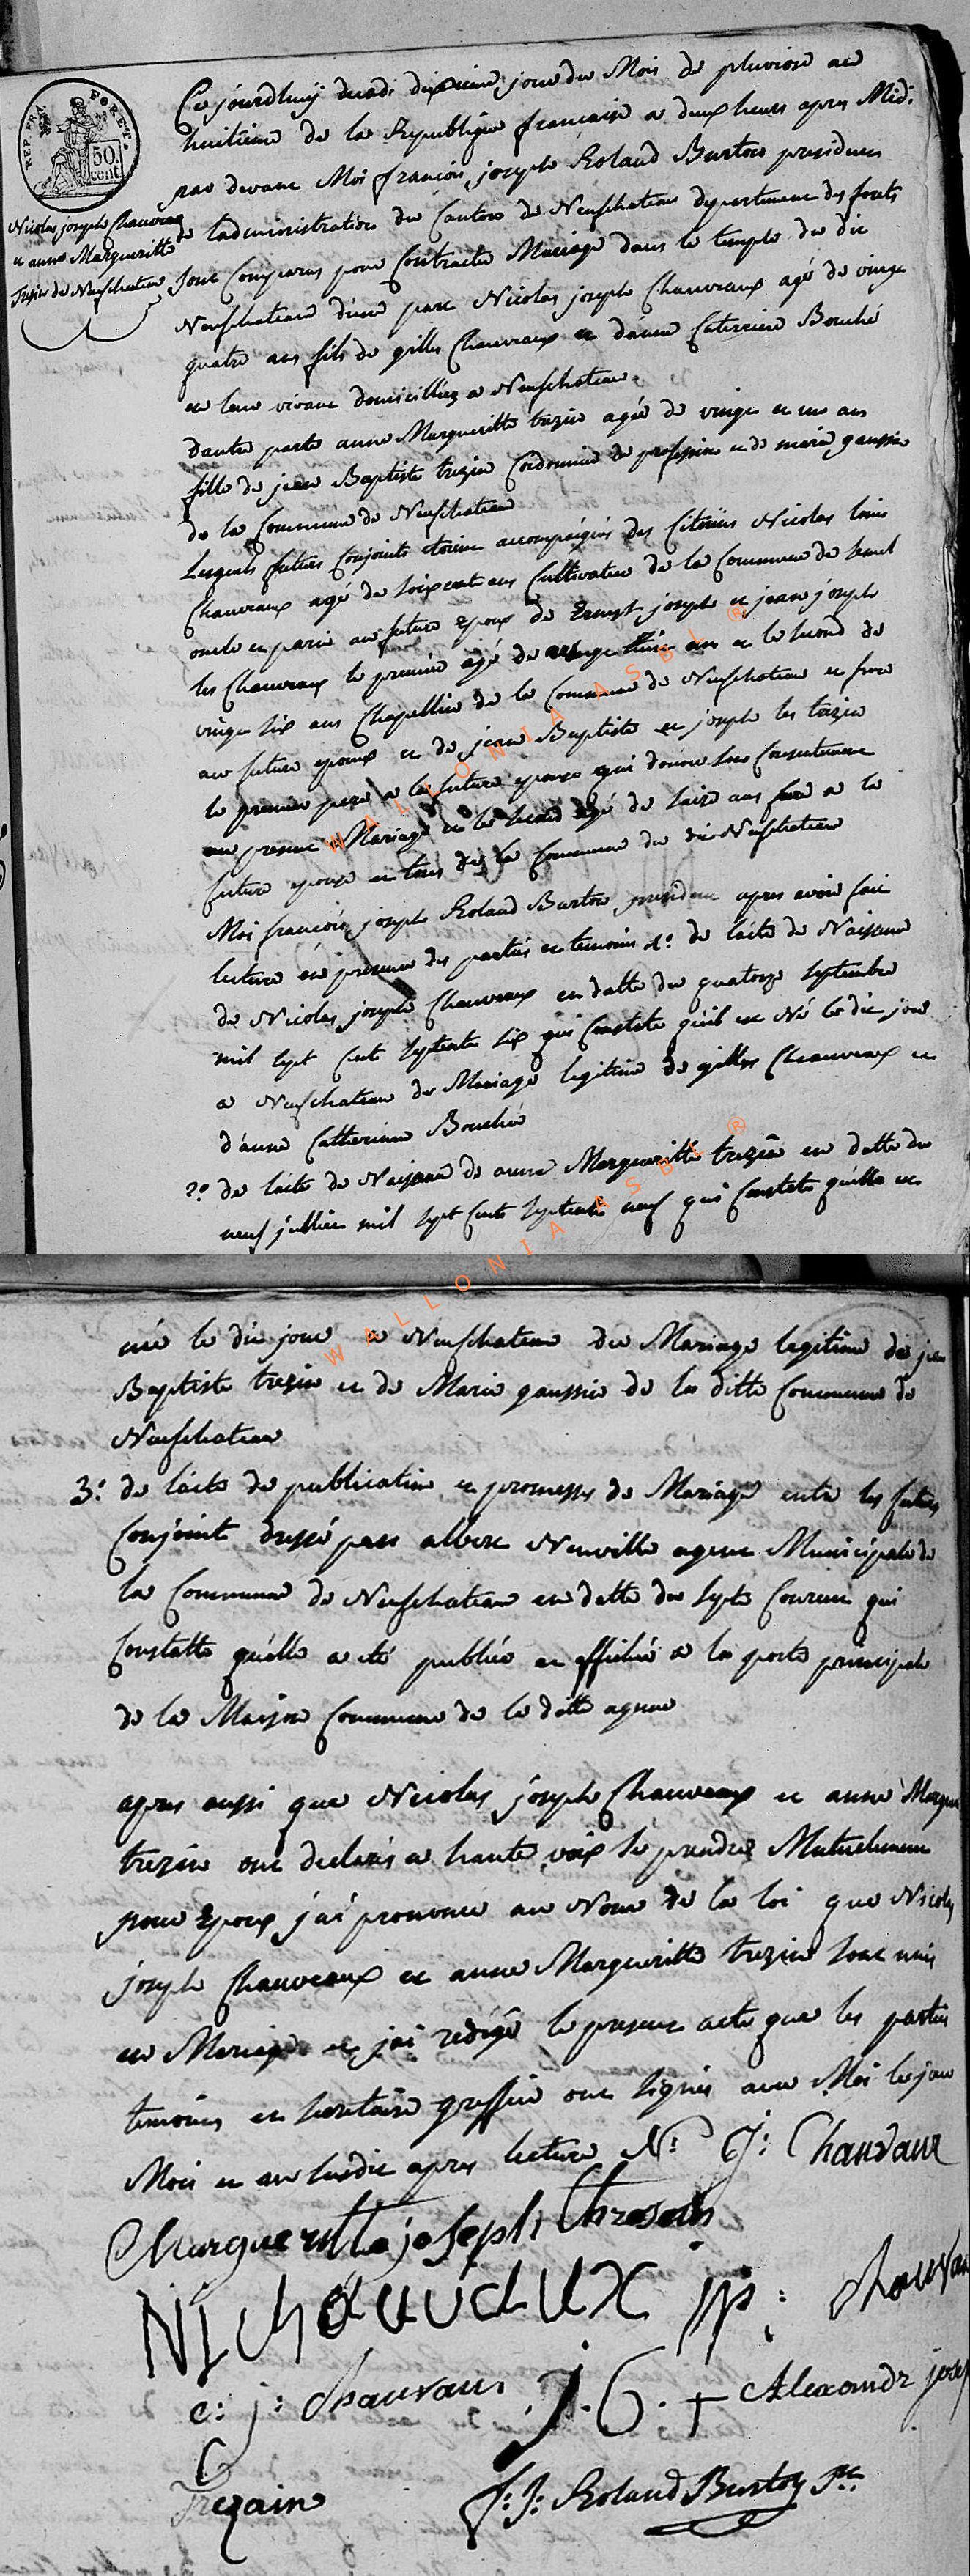 REP. FRA. FORET.
50. cent.
Nicolas joseph Chauveaux
et anne Margueritte
trezin de Neufchateau
Ce jourdhuij decadi dixieme jour du Mois de pluviose an
huitieme de la Republique francaise a deux heures apres Midi
par devant Moi francois joseph Roland Burton president
de ladministration du Canton de Neufchateau departement des forets
sont Comparus pour Contracter Mariage dans le temple du dit
Neufchateau d'une part Nicolas joseph Chauveaux agé de vingt
quatre ans fils de gilles Chauveaux et d'anne Catherine Bouché
en leur vivant domicilliez a Neufchateau
dautre parte anne Margueritte trezin agée de vingt et un ans
fille de jean Baptiste trezin Cordonnier de profession et de marie gaussin
de la Commune de Neufchateau
Lesquels futurs Conjoints etoient accompaignés des Citoiens Nicolas louis
Chauveaux agé de soixcent ans Cultivateur de la Commune de
oncle et parin au future epoux de Ernest joseph et jean joseph
les Chauveaux le premier agé de an et le second de
vingt six ans Chapellier de la Commune de Neufchateau et frere
au future epoux et de jean Baptiste et joseph les trezin
le premier pere a la future epouse qui donne son Consentement
au present Mariage et le second agé de saize ans frere a la
future epouse et tous de la Commune du dit Neufchateau
Moi francois joseph Roland Burton president apres avoir fait
lecture en presence des parties et temoins 1º de lacte de Naissance
de Nicolas joseph Chauveaux en datte du quatorze septembre
mil sept cent septente six qui Constate quil est Né le dit jour
a Neufchateau du Mariage legitime de gilles Chauveaux et
d'anne Catherinne Bouché
2º de lacte de Naissance de anne Margueritte trezin en datte du
neuf juillet mil sept cents septente neuf qui Constate quelle est
née le dit jour a Neufchateau du Mariage legitime de jean
Baptiste trezin et de Marie gaussin de la ditte Commune de
Neufchateau
3º de lacte de publication et promesse de Mariage entre les futurs
Conjoint dressé par albert Neuville agent Municipale de
la Commune de Neufchateau en datte du sept Courant qui
Constatte quelle a été publiée et affichée a la porte principale
de la Maison Commune de la ditte agence
apres aussi que Nicolas joseph Chauveaux et anne Margueritte
trezin ont declarés a haute voix se prendre Mutuelement
pour Epoux j'ai prononcé au Nom de la loi que Nicolas
joseph Chauveaux et anne Margueritte trezin sont unis
en Mariage et j'ai redigé le present acte que les parties
temoins et secretaire greffier ont signés avec Moi les jour
Mois et an susdit apres lecture N: J: Chauvaux
Margueritte joseph Thresein
NL chauvaux jp: Chauvau
e: j: chauvaux J. b. + Alexandr josep
Trezain F: J: Roland Burton Pt.
WALLONIA ASBL ®
WALLONIA ASBL ®